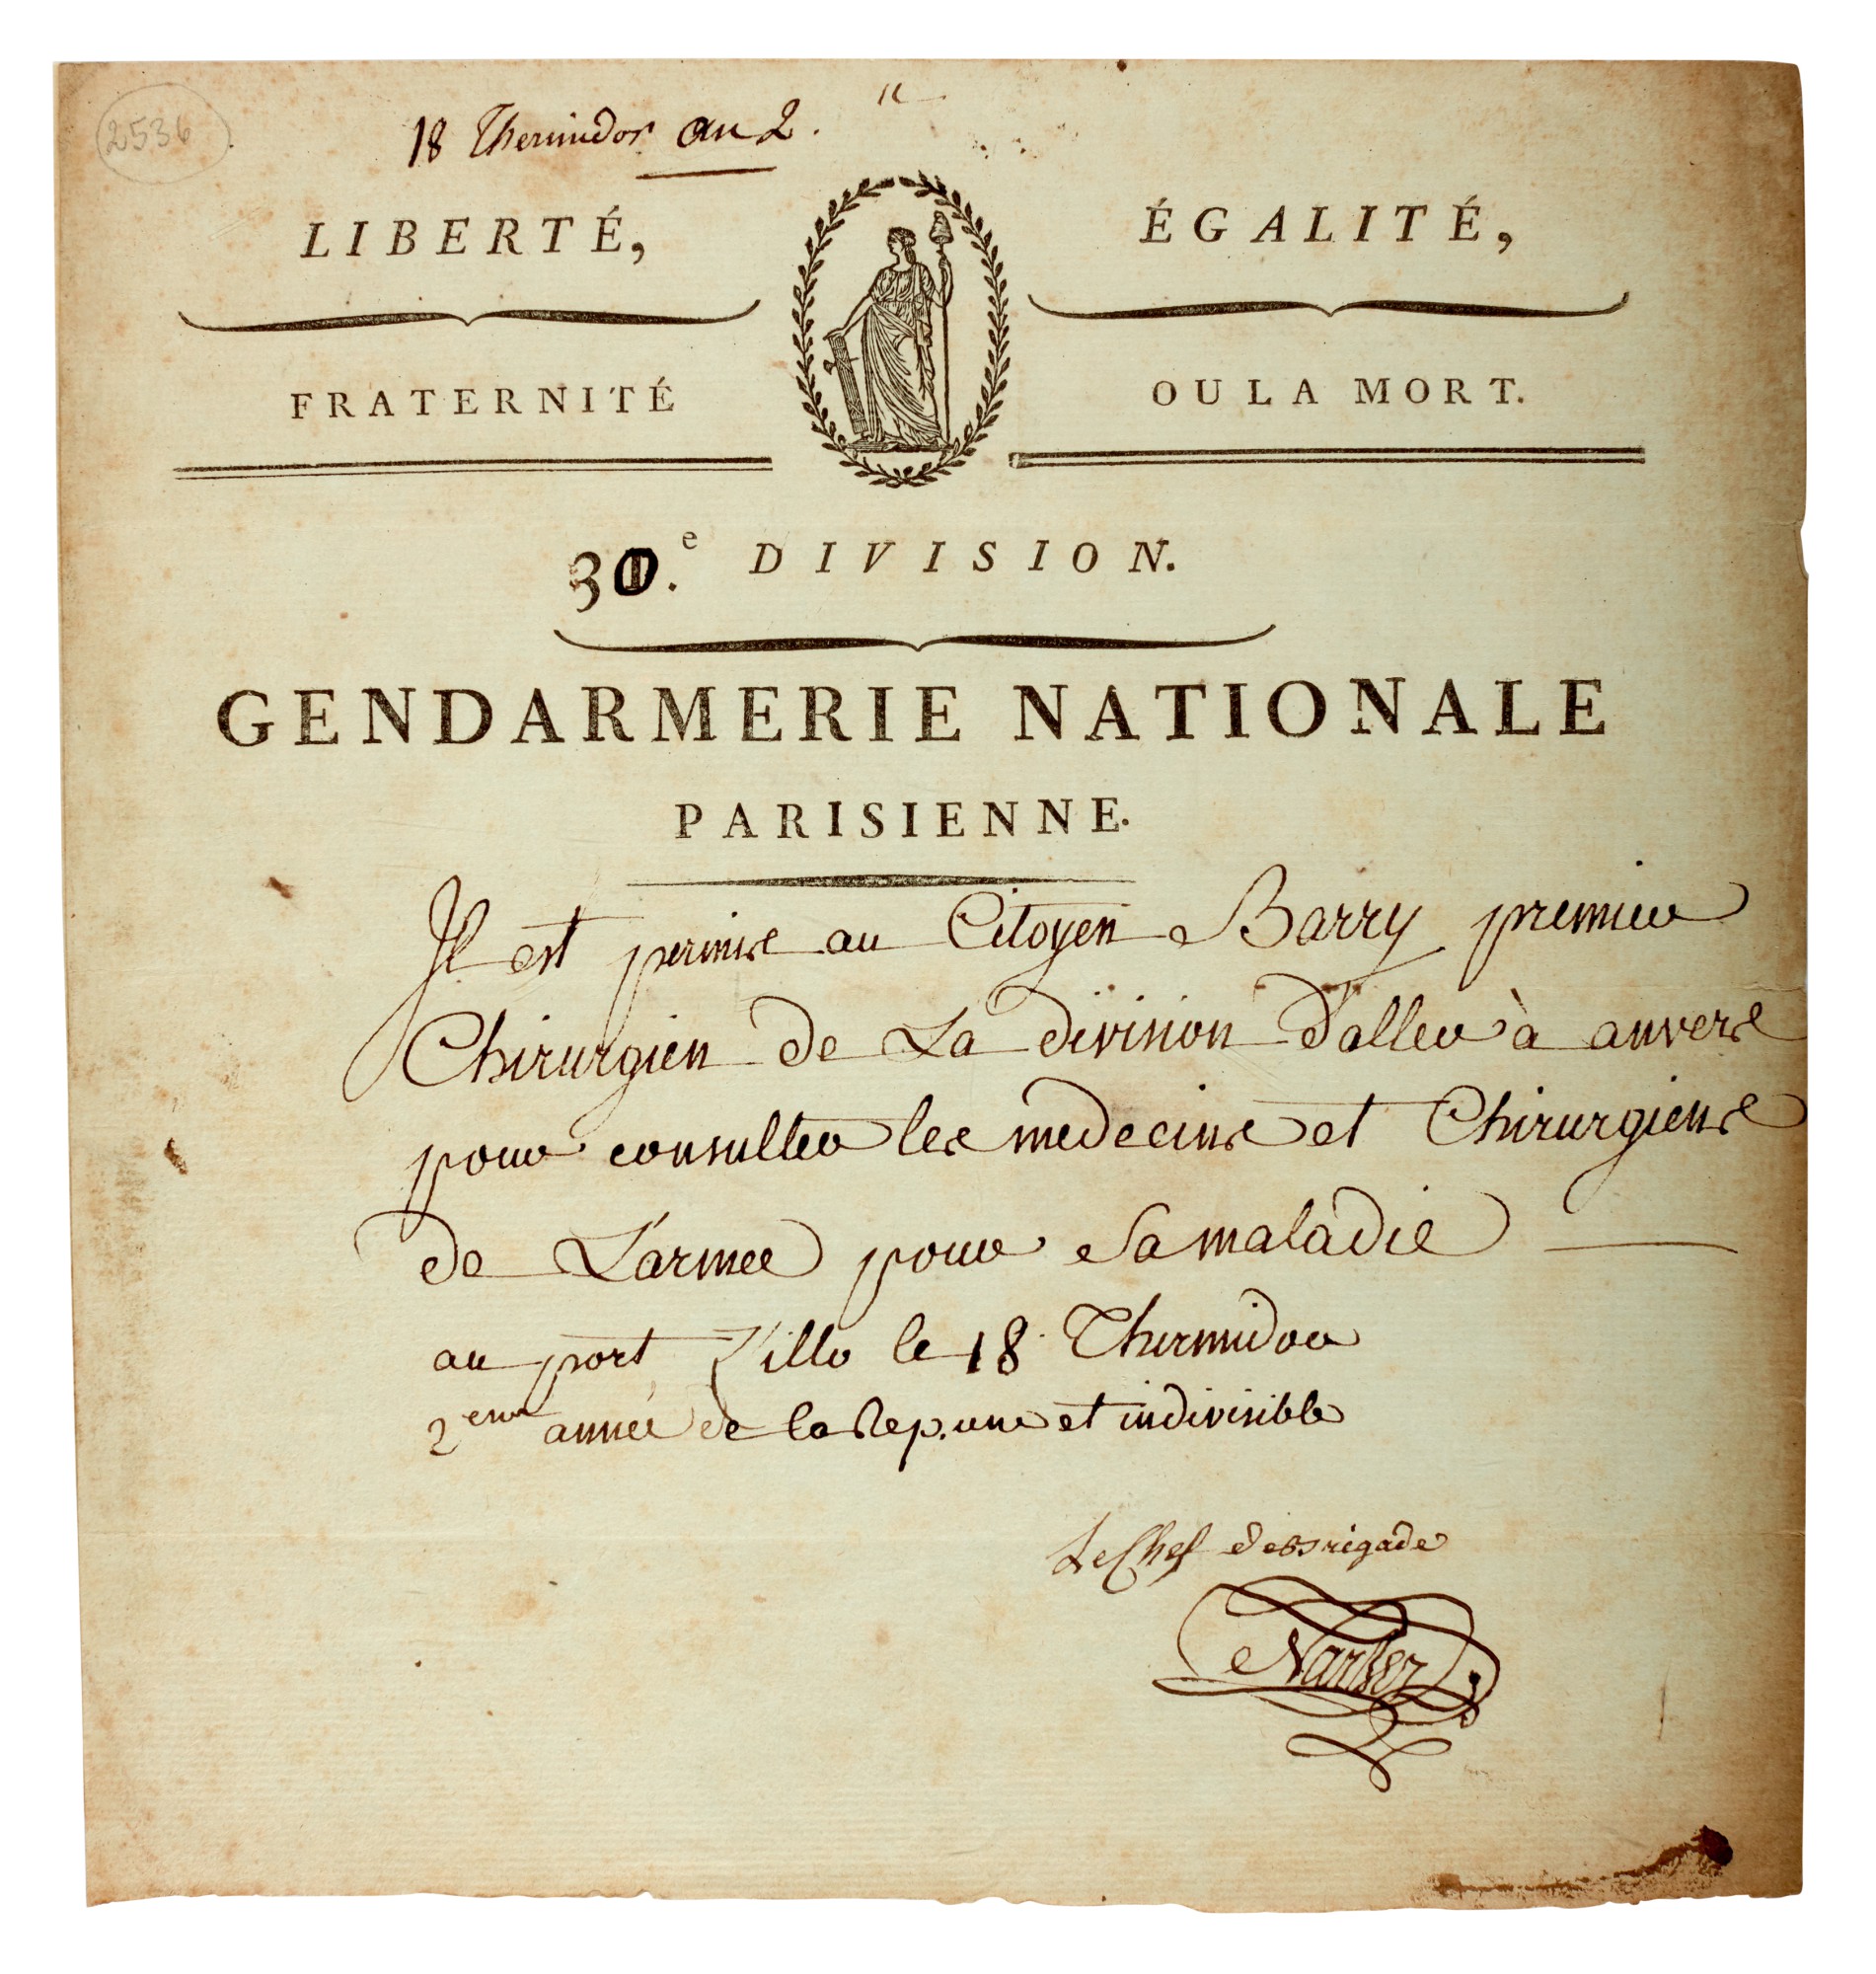 2536
18 Thermidor an 2.
LIBERTÉ, ÉGALITÉ,
FRATERNITÉ OU LA MORT.
30.e DIVISION.
GENDARMERIE NATIONALE
PARISIENNE.
Il est permis au Citoyen Barry premier
Chirurgien de La division d'aller à anvers
pour consulter les medecins et Chirurgiens
de L'armée pour Sa maladie
au port Lillo le 18 Thermidor
2eme année de la Rep. une et indivisible
Le Chef de Brigade